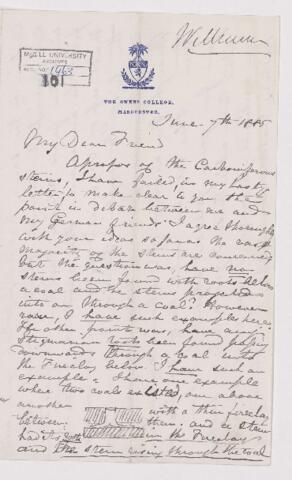 Williamson
McGILL UNIVERSITY
ARCHIVES
ACC. NO. 1463
101
THE OWENS COLLEGE,
MANCHESTER.
June 7th 1885
My Dear Friend
Apropos of the Carboniferous
stems, I have failed, in my last
letter to make clear to you the
points in debate between me and
my German friends. I agree thoroughly
with your ideas so far as the vast
majority of the stems are concerned
but the question was, have no
stems been found with roots below
a coal and the stem projected
into or through a coal? However
rare, I have such examples here.
The other point was, have any
Stigmarian roots been found going
downwards through a coal into
the Fireclay below. I have such an
example. I have one example
where two coals existed, one above
another with a thin fireclay
between them. and a stem
had its roots in the Fireclay
and the stem rising through the coal